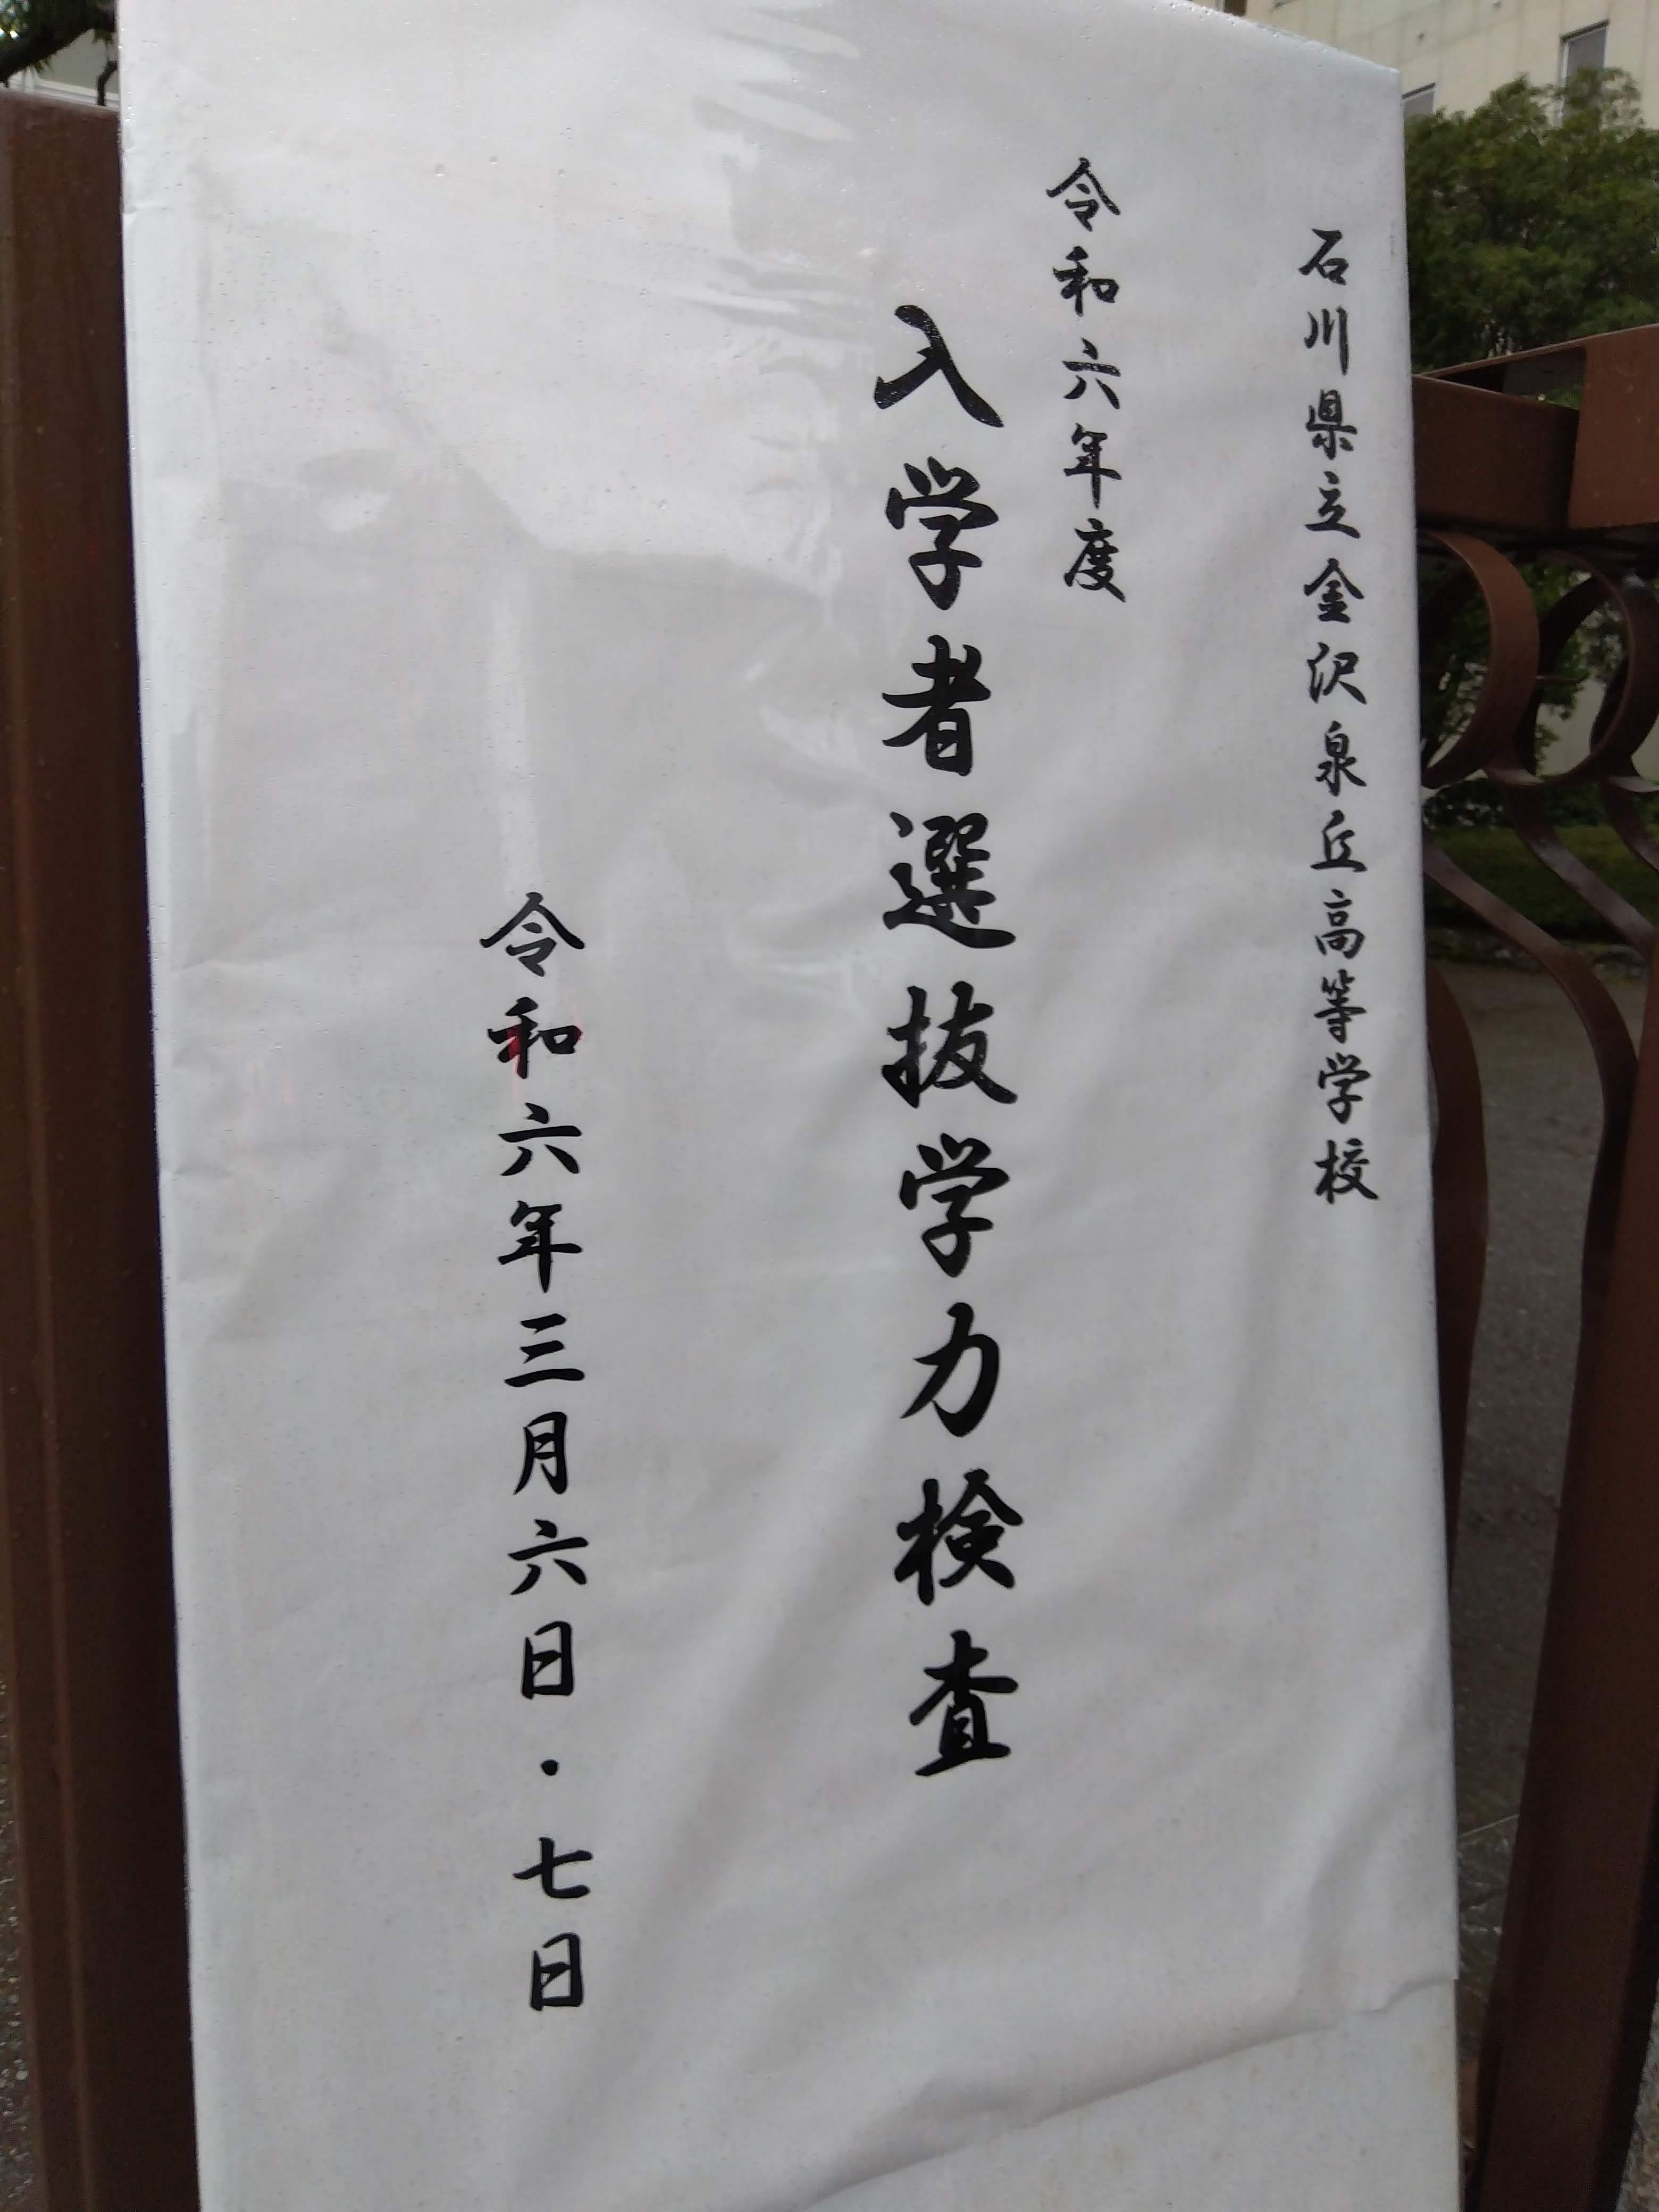 石川県立金沢泉丘高等学校
令和六年度
入学者選抜学力検査
令和六年三月六日・七日